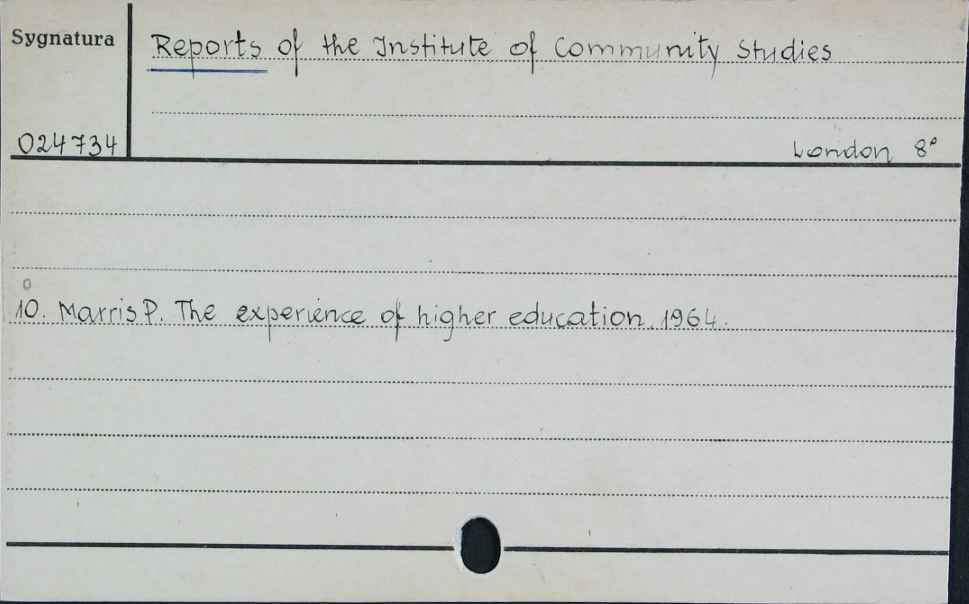 Sygnatura
Reports of the Institute of Community Studies
024734
London 8°
o
10. Marris P. The experience of higher education. 1964.